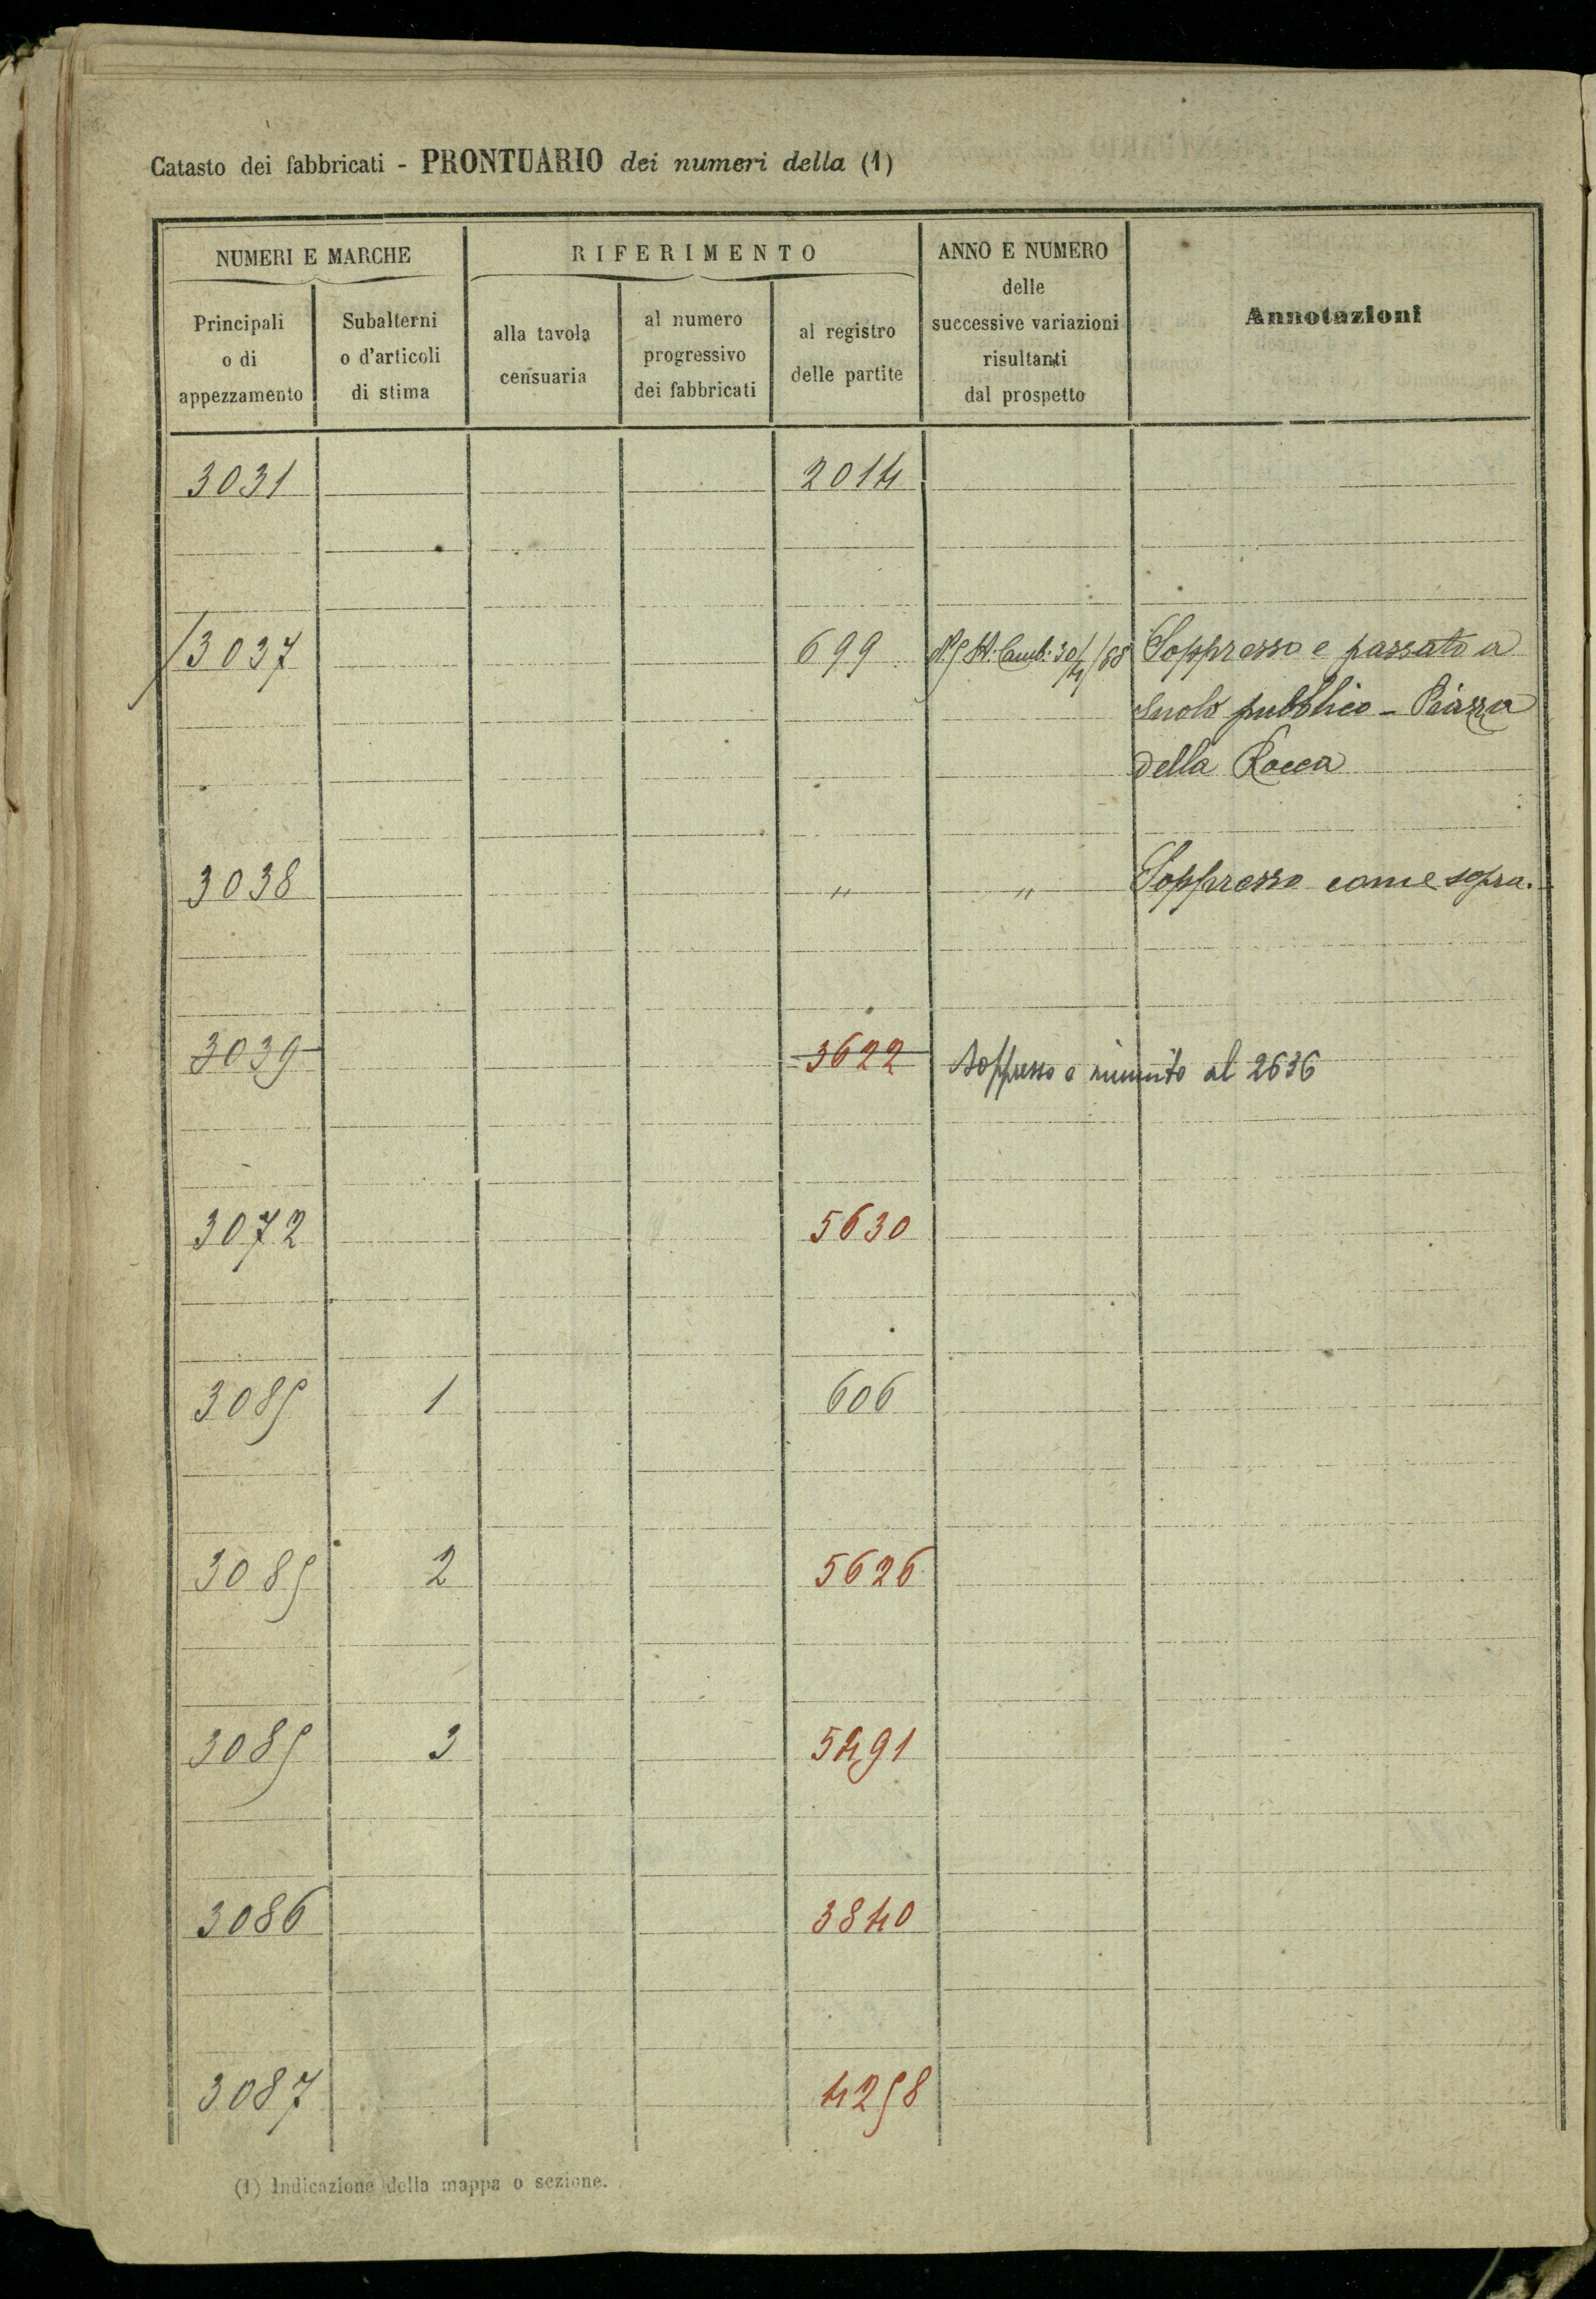 Catasto dei fabbricati - PRONTUARIO dei numeri della (1)
NUMERI E MARCHE
RIFERIMENTO
ANNO E NUMERO
delle
successive variazioni
risultanti
dal prospetto
Annotazioni
Principali
o di
appezzamento
Subalterni
o d'articoli
di stima
alla tavola
censuaria
al numero
progressivo
dei fabbricati
al registro
delle partite
3031 2014
3037 699 30/4/88 Soppresso e passato a
suolo pubblico - Piazza
della Rocca
3038 " " Soppresso come sopra.
3039 3622 Soppresso e riunito al 2636
3072 5630
3085 1 606
3085 2 5626
3085 3 5491
3086 3840
3087 4258
(1) Indicazione della mappa o sezione.